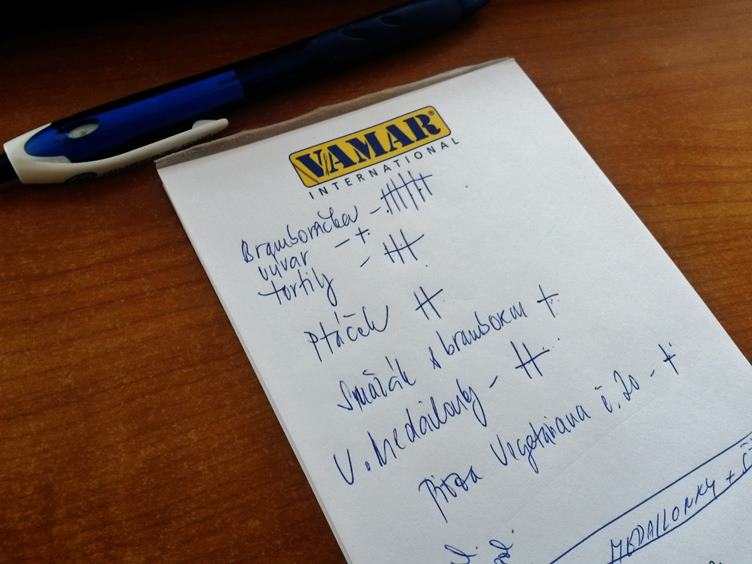 VAMAR®
INTERNATIONAL
Bramboračka -
vývar -
tortily -
Ptáček
Smažák s bramborem
V. Medailonky -
Pizza Vegetariana č. 20 -
MEDAILONKY +